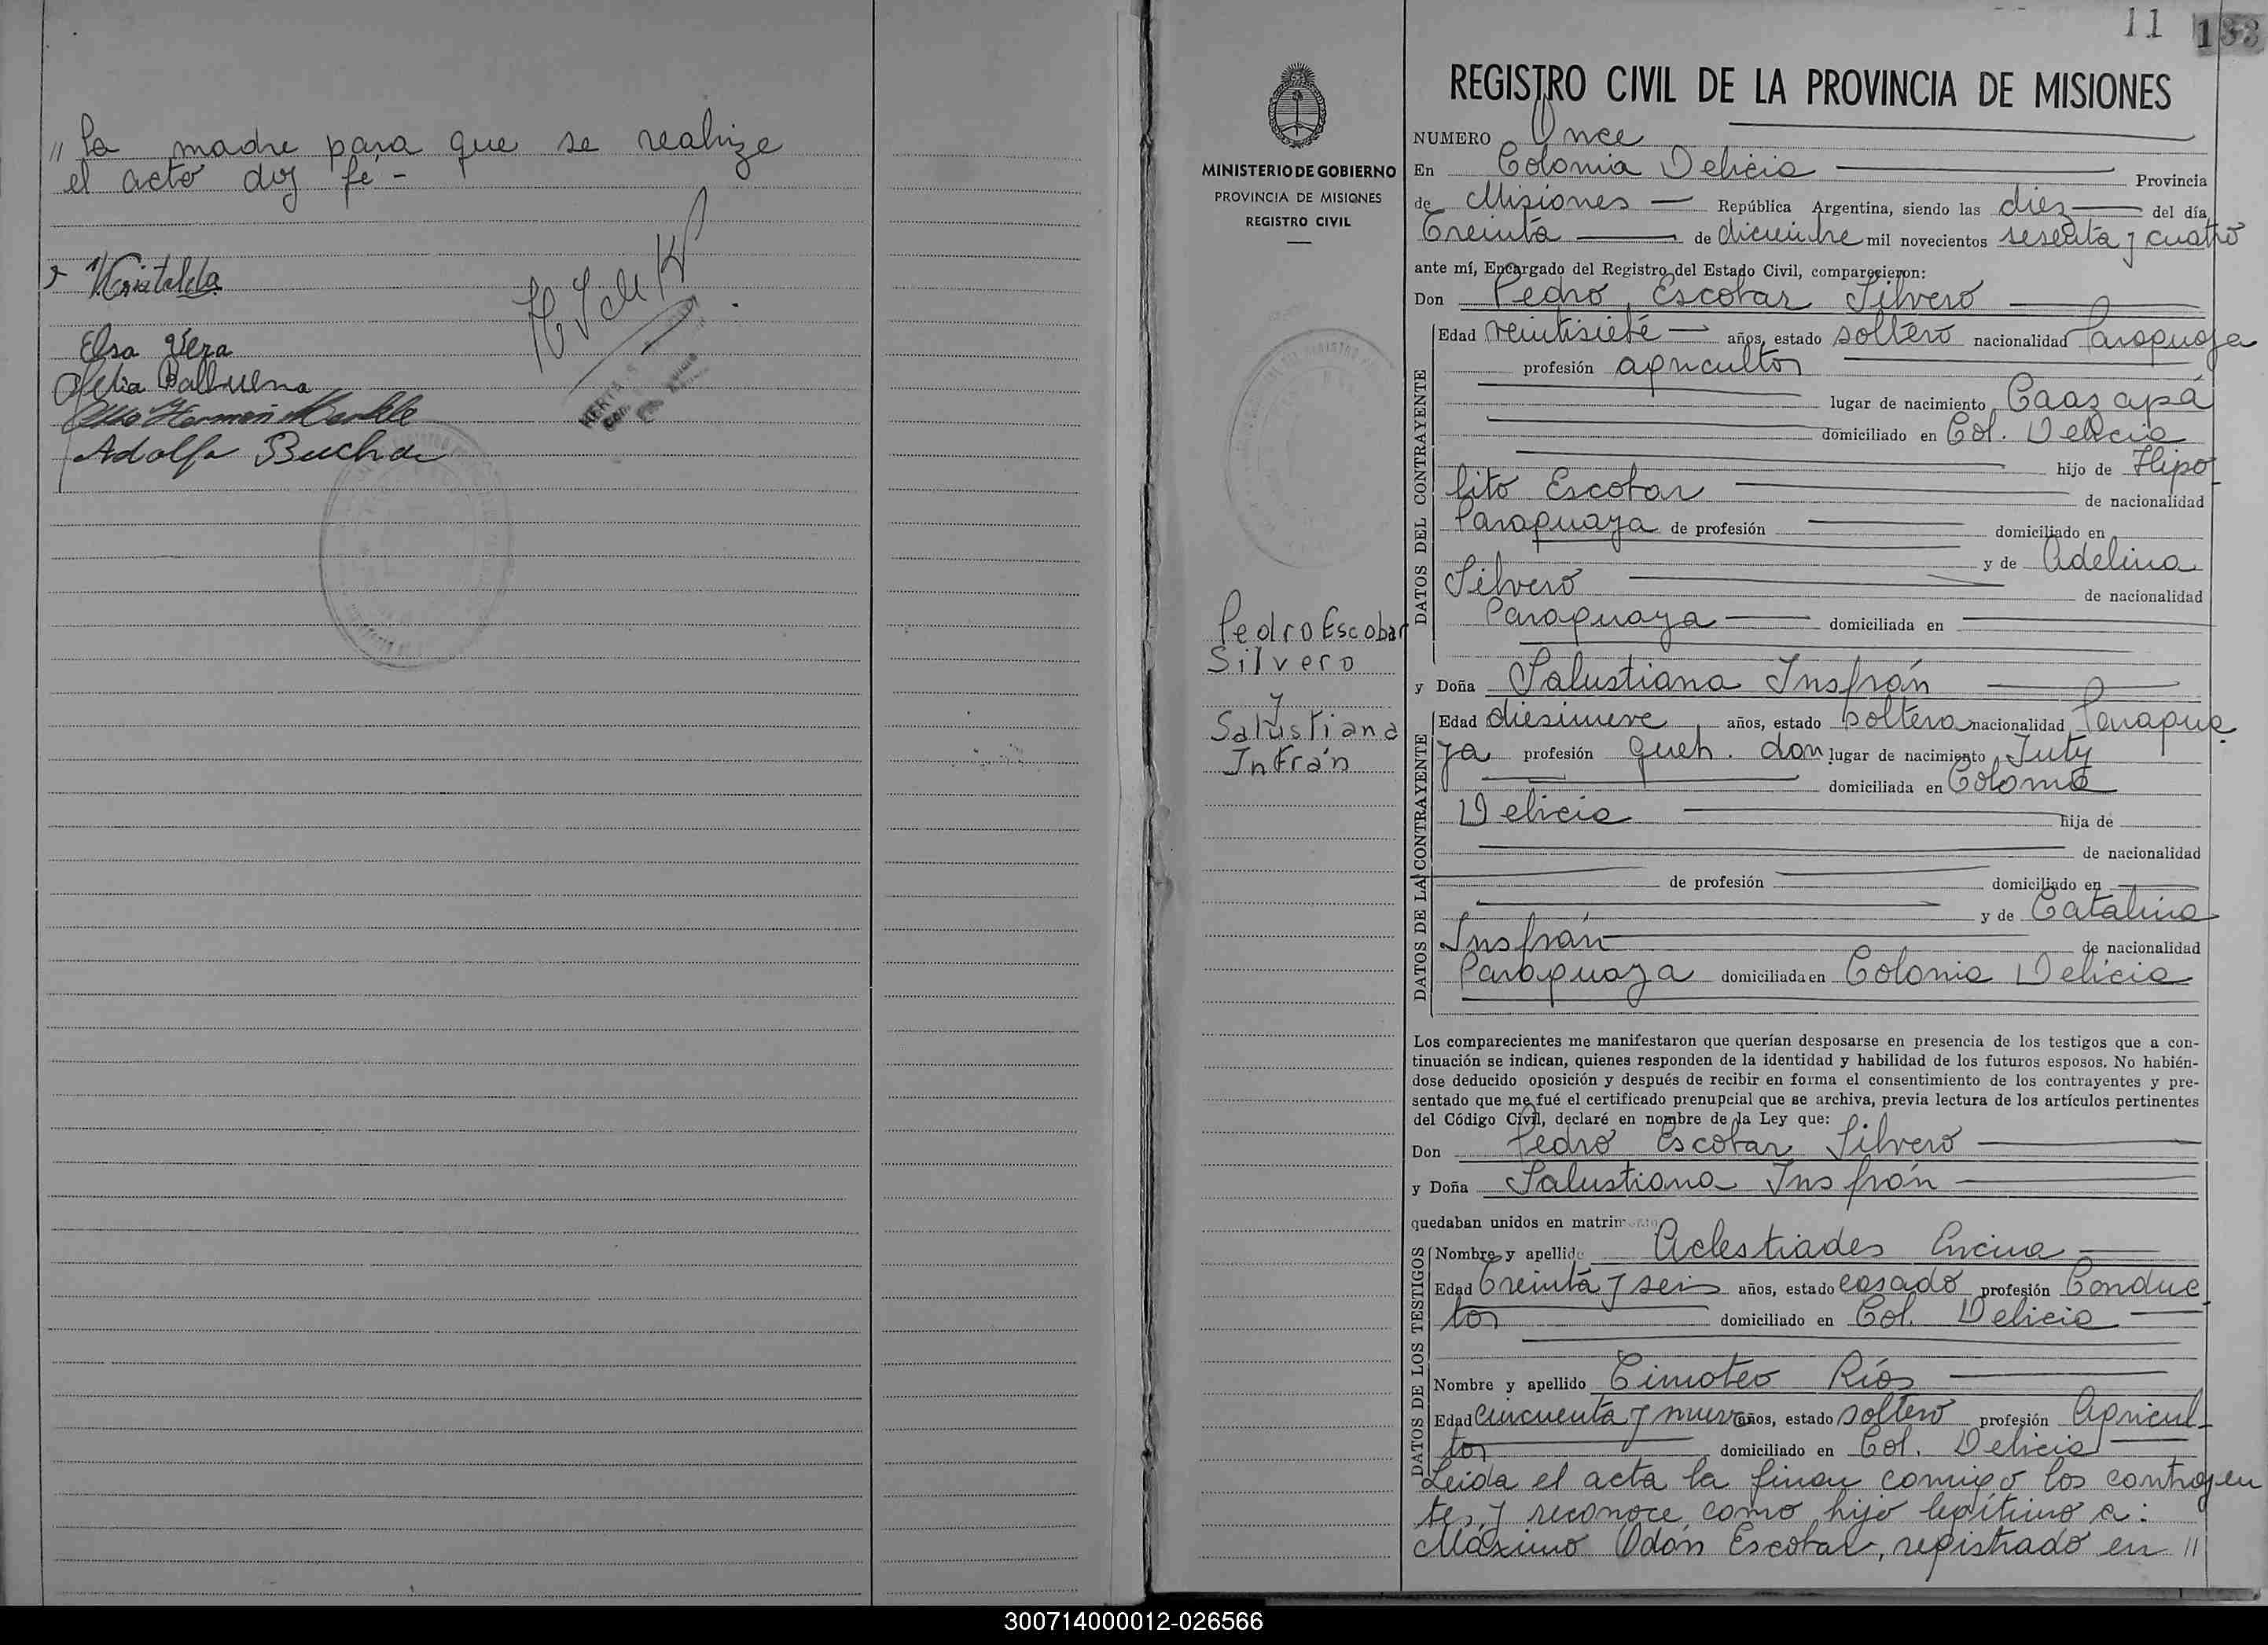 " la madre para que se realize
el acto doy fe -
Elsa Vera
Balbuena
Adolfo
11
REGISTRO CIVIL DE LA PROVINCIA DE MISIONES
MINISTERIO DE GOBIERNO
PROVINCIA DE MISIONES
REGISTRO CIVIL
Pedro Escobar
Silvero
y
Salustiana
Infrán
NUMERO Once
En Colonia Delicia Provincia
de Misiones República Argentina, siendo las diez del día
Treinta de diciembre mil novecientos sesenta y cuatro
ante mí, Encargado del Registro del Estado Civil, comparecieron:
Don Pedro Escobar Silvero
DATOS DEL CONTRAYENTE
Edad veintisiete años, estado soltero nacionalidad Paraguaya
profesión agricultor
lugar de nacimiento Caazapá
domiciliado en Col. Delicia
hijo de Hipo
lito Escobar de nacionalidad
Paraguaya de profesión domiciliado en
y de Adelina
Silvero de nacionalidad
Paraguaya domiciliada en
y Doña Salustiana Insfrán
DATOS DE LA CONTRAYENTE
Edad diesinueve años, estado soltera nacionalidad Paragua
ya profesión queh. dom lugar de nacimiento Yuty
domiciliada en Colonia
Delicia hija de
de nacionalidad
de profesión domiciliado en
y de Catalina
Insfrán de nacionalidad
Paraguaya domiciliada en Colonia Delicia
Los comparecientes me manifestaron que querían desposarse en presencia de los testigos que a con-
tinuación se indican, quienes responden de la identidad y habilidad de los futuros esposos. No habién-
dose deducido oposición y después de recibir en forma el consentimiento de los contrayentes y pre-
sentado que me fué el certificado prenupcial que se archiva, previa lectura de los artículos pertinentes
del Código Civil, declaré en nombre de la Ley que:
Don Pedro Escobar Silvero
y Doña Salustiana Insfrán
quedaban unidos en matrimonio
DATOS DE LOS TESTIGOS
Nombre y apellido Aclestiades Encina
Edad Treinta y seis años, estado casado profesión Conduc
tor domiciliado en Col. Delicia
Nombre y apellido Timoteo Ríos
Edad cincuenta y nueve años, estado soltero profesión Agricul-
tor domiciliado en Col. Delicia
Leida el acta la firman comigo los contrayen
tes, y reconoce como hijo legítimo a:
Máximo Odón Escobar, registrado en "
300714000012-026566